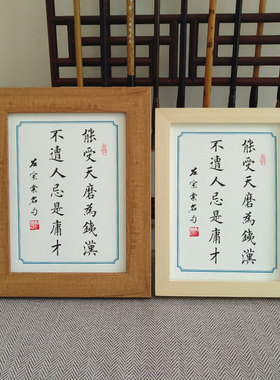 能受天磨為銕漢
不遭人忌是庸才
左宗棠名句
能受天磨為銕漢
不遭人忌是庸才
左宗棠名句